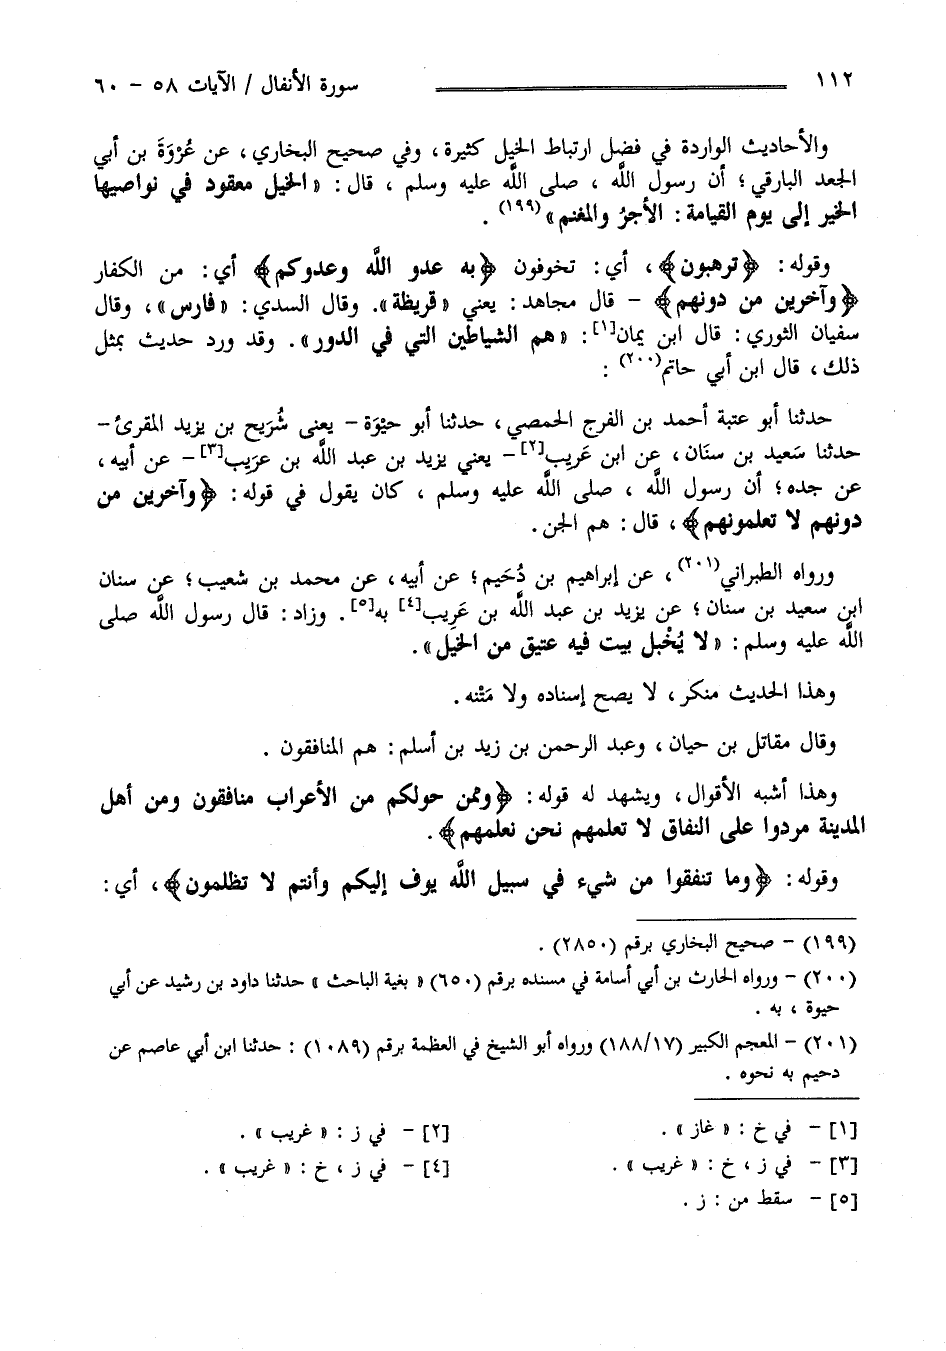 ١١٢ سورة الأنفال / الآيات ٥٨ - ٦٠
والأحاديث الواردة في فضل ارتباط الخيل كثيرة ، وفي صحيح البخاري ، عن عُرْوَةَ بن أبي
الجعد البارقي ؛ أن رسول اللَّه ، صلى اللَّه عليه وسلم ، قال : « الخيل معقود في نواصيها
الخير إلى يوم القيامة : الأجرُ والمغنم »(١٩٩) .
وقوله : ﴿ ترهبون ﴾ ، أي : تخوفون ﴿ به عدو اللَّه وعدوكم ﴾ أي : من الكفار
﴿ وآخرين من دونهم ﴾ - قال مجاهد : يعني « قريظة ». وقال السدي : « فارس » ، وقال
سفيان الثوري : قال ابن يمان[١] : « هم الشياطين التي في الدور » . وقد ورد حديث بمثل
ذلك ، قال ابن أبي حاتم(٢٠٠) :
حدثنا أبو عتبة أحمد بن الفرج الحمصي ، حدثنا أبو حيْوَة - يعنى شُرَيح بن يزيد المقرئ -
حدثنا سَعيد بن سنَان ، عن ابن عَريب[٢] - يعني يزيد بن عبد اللَّه بن عرَيب[٣] - عن أبيه ،
عن جده ؛ أن رسول اللَّه ، صلى اللَّه عليه وسلم ، كان يقول في قوله : ﴿ وآخرين من
دونهم لا تعلمونهم ﴾ ، قال : هم الجن .
ورواه الطبراني(٢٠١) ، عن إبراهيم بن دُحَيم ؛ عن أبيه ، عن محمد بن شعيب ؛ عن سنان
ابن سعيد بن سنان ؛ عن يزيد بن عبد اللَّه بن عَرِيب[٤] به[٥] . وزاد : قال رسول اللَّه صلى
اللَّه عليه وسلم : « لا يُخْبل بيت فيه عتيق من الخيل » .
وهذا الحديث منكر ، لا يصح إسناده ولا مَتْنه .
وقال مقاتل بن حيان ، وعبد الرحمن بن زيد بن أسلم : هم المنافقون .
وهذا أشبه الأقوال ، ويشهد له قوله : ﴿ وممن حولكم من الأعراب منافقون ومن أهل
المدينة مردوا على النفاق لا تعلمهم نحن نعلمهم ﴾ .
وقوله : ﴿ وما تنفقوا من شيء في سبيل اللَّه يوف إليكم وأنتم لا تظلمون ﴾ ، أي :
(١٩٩) - صحيح البخاري برقم (٢٨٥٠) .
(٢٠٠) - ورواه الحارث بن أبي أسامة في مسنده برقم (٦٥٠) « بغية الباحث » حدثنا داود بن رشيد عن أبي
حيوة ، به .
(٢٠١) - المعجم الكبير (١٨٨/١٧) ورواه أبو الشيخ في العظمة برقم (١٠٨٩) : حدثنا ابن أبي عاصم عن
دحيم به نحوه .
[١] - في خ : « غاز » . [٢] - في ز : « غريب » .
[٣] - في ز ، خ : « غريب » . [٤] - في ز ، خ : « غريب » .
[٥] - سقط من : ز .